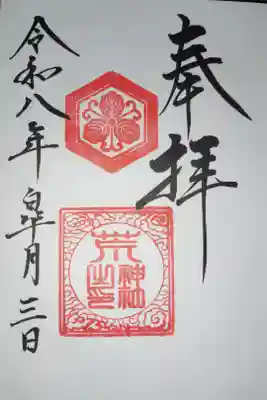 奉拝
荒神社之印
令和八年皐月三日